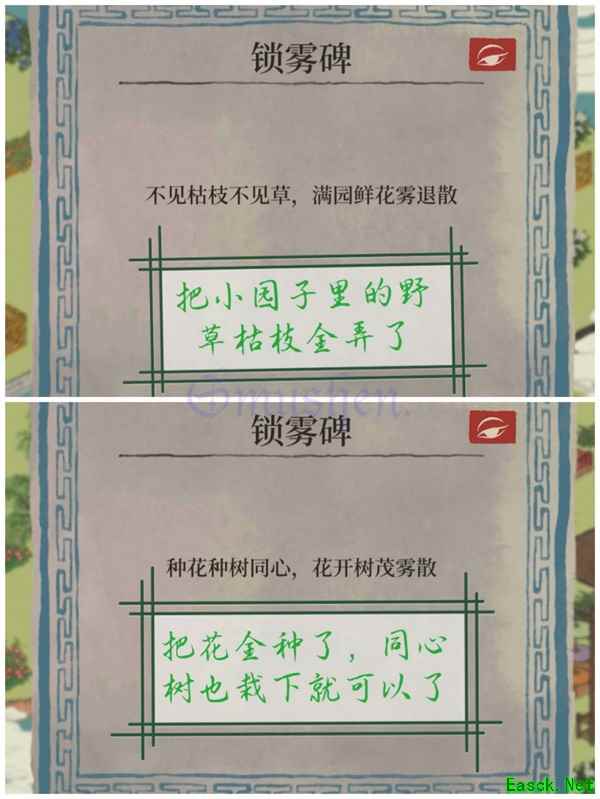 锁雾碑
不见枯枝不见草，满园鲜花雾退散
把小园子里的野
草枯枝全弄了
Gmushen.
锁雾碑
种花种树同心，花开树茂雾散
把花全种了，同心
树也栽下就可以了
Easck.Net